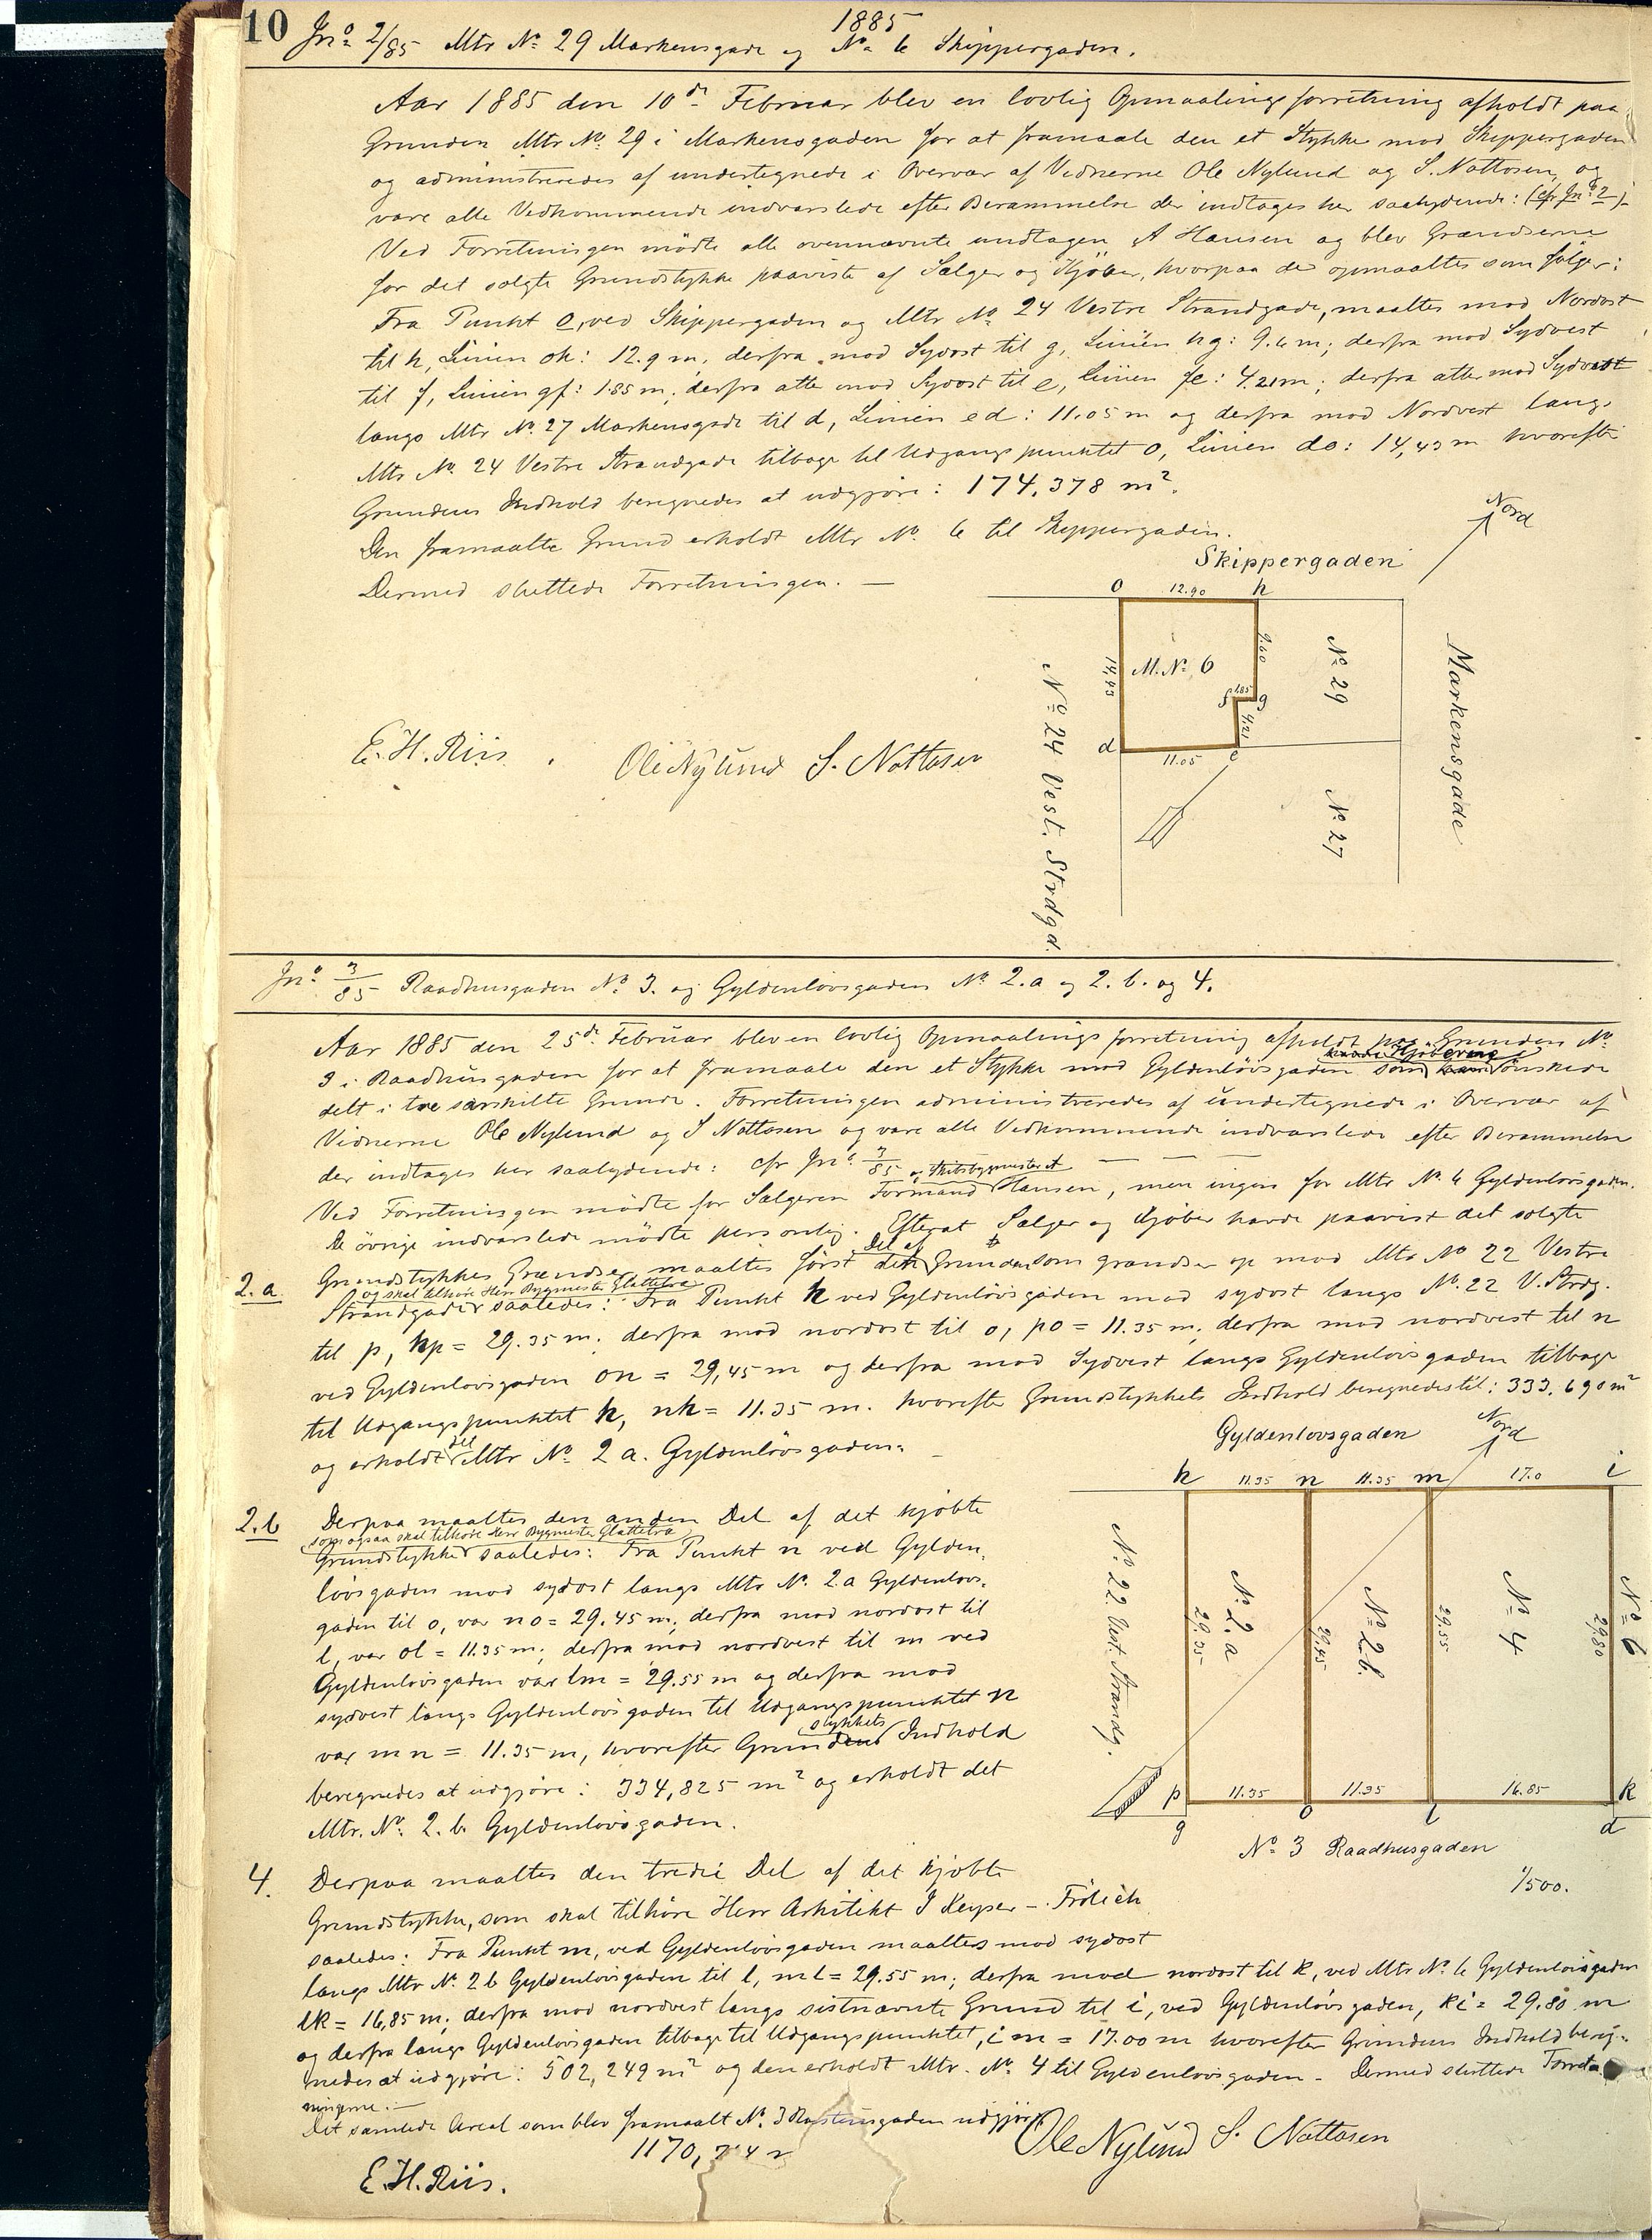 10
1885
Jnº 2/85 Mtr Nº 29 Markensgade og Nº 6 Skippergaden.
Aar 1885 den 10de Februar blev en lovlig Opmaalingsforretning afholdt paa
Grunden Mtr Nº 29 i Markensgaden for at framaale den et Stykke mod Skippergaden
og administreredes af undertegnede i Overvær af Vidnerne Ole Nylund og S. Nottosen, og
vare alle Vedkommende indvarslede efter Berammelse der indtages her saalydende: (cfr Jnº 2).
Ved Forretningen mödte alle ovennævnte undtagen A Hansen og blev Grændserne
for det solgte Grundstykke paaviste af Sælger og Kjöber, hvorpaa de opmaaltes som fölger:
Fra Punkt o, ved Skippergaden og Mtr Nº 24 Vestre Strandgade, maaltes mod Nordost
til h, Linien oh: 12.9 m, derfra mod Sydost til g, Linien hg: 9.6 m; derfra mod Sydvest
til f, Linien gf: 1.85 m; derfra atter mod Sydost til e, Linien fe: 4.21 m; derfra atter mod Sydvest
langs Mtr Nº 27 Markensgade til d, Linien ed: 11.05 m og derfra mod Nordvest langs
Mtr Nº 24 Vestre Strandgade tilbage til Udgangspunktet o, Linien do: 14,43 m hvorefter
Grundens Indhold beregnedes at udgjöre: 174,378 m².
Den framaalte Grund erholdt Mtr Nº 6 til Skippergaden.
Dermed sluttede Forretningen. —
Nord
Skippergaden
o 12.90 h
14,43
M. Nº 6
9.60
f 1.85 g
4.21
d 11.05 e
Nº 29
Nº 27
Nº 24 Vest. Strdgd.
Markensgade
E. H. Riis.
Ole Nylund S. Nottosen
Jnº 3/85 Raadhusgaden Nº 3. og Gyldenlövsgaden Nº 2.a og 2.b. og 4.
Aar 1885 den 25de Februar blev en lovlig Opmaalingsforretning afholdt paa Grunden Nº
3 i Raadhusgaden for at framaale den et Stykke mod Gyldenlövsgaden som Kjöberne önskede
delt i tre særskilte Grunde. Forretningen administreredes af undertegnede i Overvær af
Vidnerne Ole Nylund og S Nottosen og vare alle Vedkommende indvarslede efter Berammelse
der indtages her saalydende: cfr Jnº 3/85 — — —
og Skibsbygmester A
Ved Forretningen mödte for Sælgeren Formand Hansen, men ingen for Mtr Nº 6 Gyldenlövsgaden.
De övrige indvarslede mödte personlig. Efterat Sælger og Kjöber havde paavist det solgte
Del af
2.a. Grundstykkes Grændser maaltes först den Grunden som grændser op mod Mtr Nº 22 Vestre
og skal tilhöre Herr Bygmester Glattetre
Strandgade saaledes: Fra Punkt h ved Gyldenlövsgaden mod sydost langs Nº 22 V. Strdg.
til p, hp = 29.35 m; derfra mod nordost til o, po = 11.35 m; derfra mod nordvest til n
ved Gyldenlövsgaden on = 29,45 m og derfra mod Sydvest langs Gyldenlövsgaden tilbage
til Udgangspunktet h, nh = 11.35 m. hvorefter Grundstykkets Indhold beregnedes til: 333,690 m²
og erholdt det Mtr Nº 2 a. Gyldenlövsgaden.
2.b Derpaa maaltes den anden Del af det kjöbte
som ogsaa skal tilhöre Herr Bygmester Glattetre
Grundstykke saaledes: Fra Punkt n ved Gylden-
lövsgaden mod sydost langs Mtr Nº 2.a Gyldenlövs-
gaden til o, var no = 29.45 m; derfra mod nordost til
l, var ol = 11.35 m; derfra mod nordvest til m ved
Gyldenlövsgaden var lm = 29.55 m og derfra mod
sydvest langs Gyldenlövsgaden til Udgangspunktet n
stykkets
var mn = 11.35 m, hvorefter Grundens Indhold
beregnedes at udgjöre: 334,825 m² og erholdt det
Mtr. Nº 2.b. Gyldenlövsgaden.
Gyldenlovsgaden
Nord
h 11.35 n 11.35 m 17.0 i
Nº 22 Vest. Strandg.
29.35
Nº 2.a
29.45
Nº 2b.
29.55
Nº 4
29.80
Nº 6
p 11.35 o 11.35 l 16.85 k
g d
Nº 3 Raadhusgaden
1/500.
4. Derpaa maaltes den tredie Del af det kjöbte
Grundstykke, som skal tilhöre Herr Arkitekt J Keyser - Frölich
saaledes: Fra Punkt m, ved Gyldenlövsgaden maaltes mod sydost
langs Mtr Nº 2b Gyldenlövsgaden til l, ml = 29.55 m; derfra mod nordost til k, ved Mtr Nº 6 Gyldenlövsgaden
lk = 16,85 m; derfra mod nordvest langs sistnævnte Grund til i, ved Gyldenlövsgaden, ki = 29.80 m
og derfra langs Gyldenlövsgaden tilbage til Udgangspunktet, im = 17.00 m hvorefter Grundens Indhold bereg-
nedes at udgjöre: 502,249 m² og den erholdt Mtr. Nº 4 til Gyldenlövsgaden. Dermed sluttede Forret-
ningerne. —
Det samlede Areal som blev framaalt Nº 3 gaden udgjör
1170,
Ole Nylund S. Nottosen
E. H. Riis.